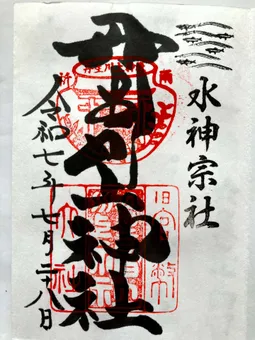 水神宗社
丹生川上神社
令和七年七月二十八日
旧官幣大社